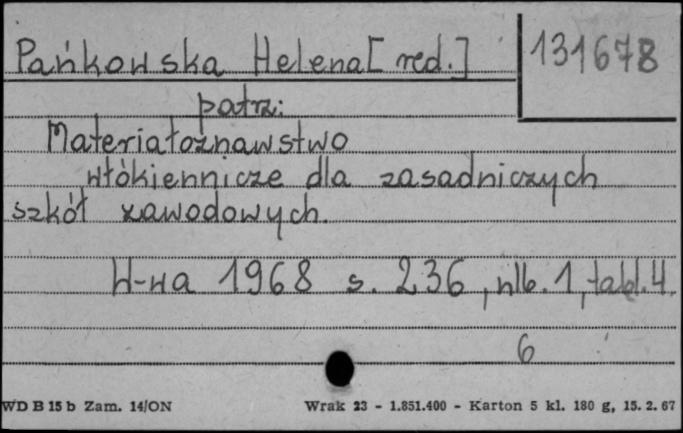 Pańkowska Helena [red.]
131678
patrz:
Materiałoznawstwo
włókiennicze dla zasadniczych
szkół zawodowych.
W-wa 1968 s. 236, nlb. 1, tabl. 4.
6
WD B 15 b Zam. 14/ON
Wrak 23 - 1.851.400 - Karton 5 kl. 180 g, 15. 2. 67